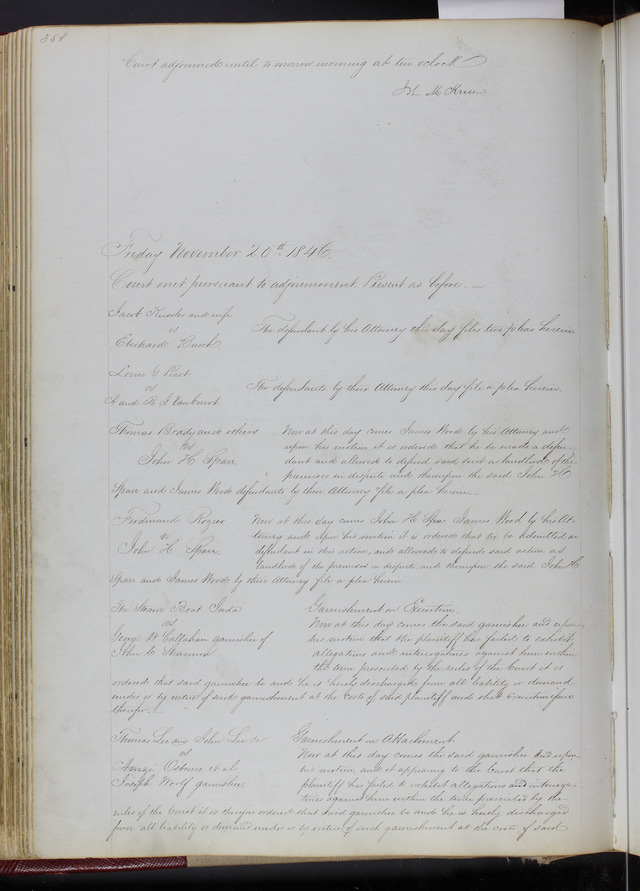 358
Court adjourned until tomorrow morning at ten oclock
Jno M Krum
Friday November 20th 1846.
Court met pursuant to adjournment Present as before
Jacob Kessler and wife
vs
Eberhard Busch
The defendant by his Attorney this day files two pleas herein
Louis G Picot
vs
The defendants by their Attorney this day file a plea herein.
Thomas Brady and others
vs
John H Sparr
Now at this day comes James Wood by his Attorney and
upon his motion it is ordered that he be made a defen-
dant and allowed to defend said suit as landlord of the
premises in dispute and thereupon the said John H
Sparr and James Wood defendants by their Attorney file a plea herein
Ferdinand Rozier
vs
John H Sparr.
Now at this day comes John H Sparr James Wood by his At-
torney and upon his motion it is ordered that he be admitted as
defendant in this action, and allowed to defend said action as
landlord of the premises in dispute and thereupon the said John H
Sparr and James Wood by their Attorney file a plea herein
The Steam Boat Tuda
vs
George W Callahan garnishee of
John C
Garnishment on Execution.
Now at this day comes the said garnishee and upon
his motion that the plaintiff has failed to exhibit
allegations and interrogatories against him within
the time prescribed by the rules of the Court it is
ordered that said garnishee be and he is hereby discharged from all liability or demand
under or by virtue of such garnishment at the costs of said plaintiff and that Execution issue
therefor.
Thomas Lee and John Lee
vs
Osborne et al
Joseph Woolf garnishee.
Garnishment on Attachment
Now at this day comes the said garnishee and upon
his motion, and it appearing to the Court that the
plaintiff has failed to exhibit allegations and interroga-
tories against him within the time prescribed by the
rules of the Court it is therefore ordered that said garnishee be and he is hereby discharged
from all liability or demand under or by virtue of such garnishment at the costs of said